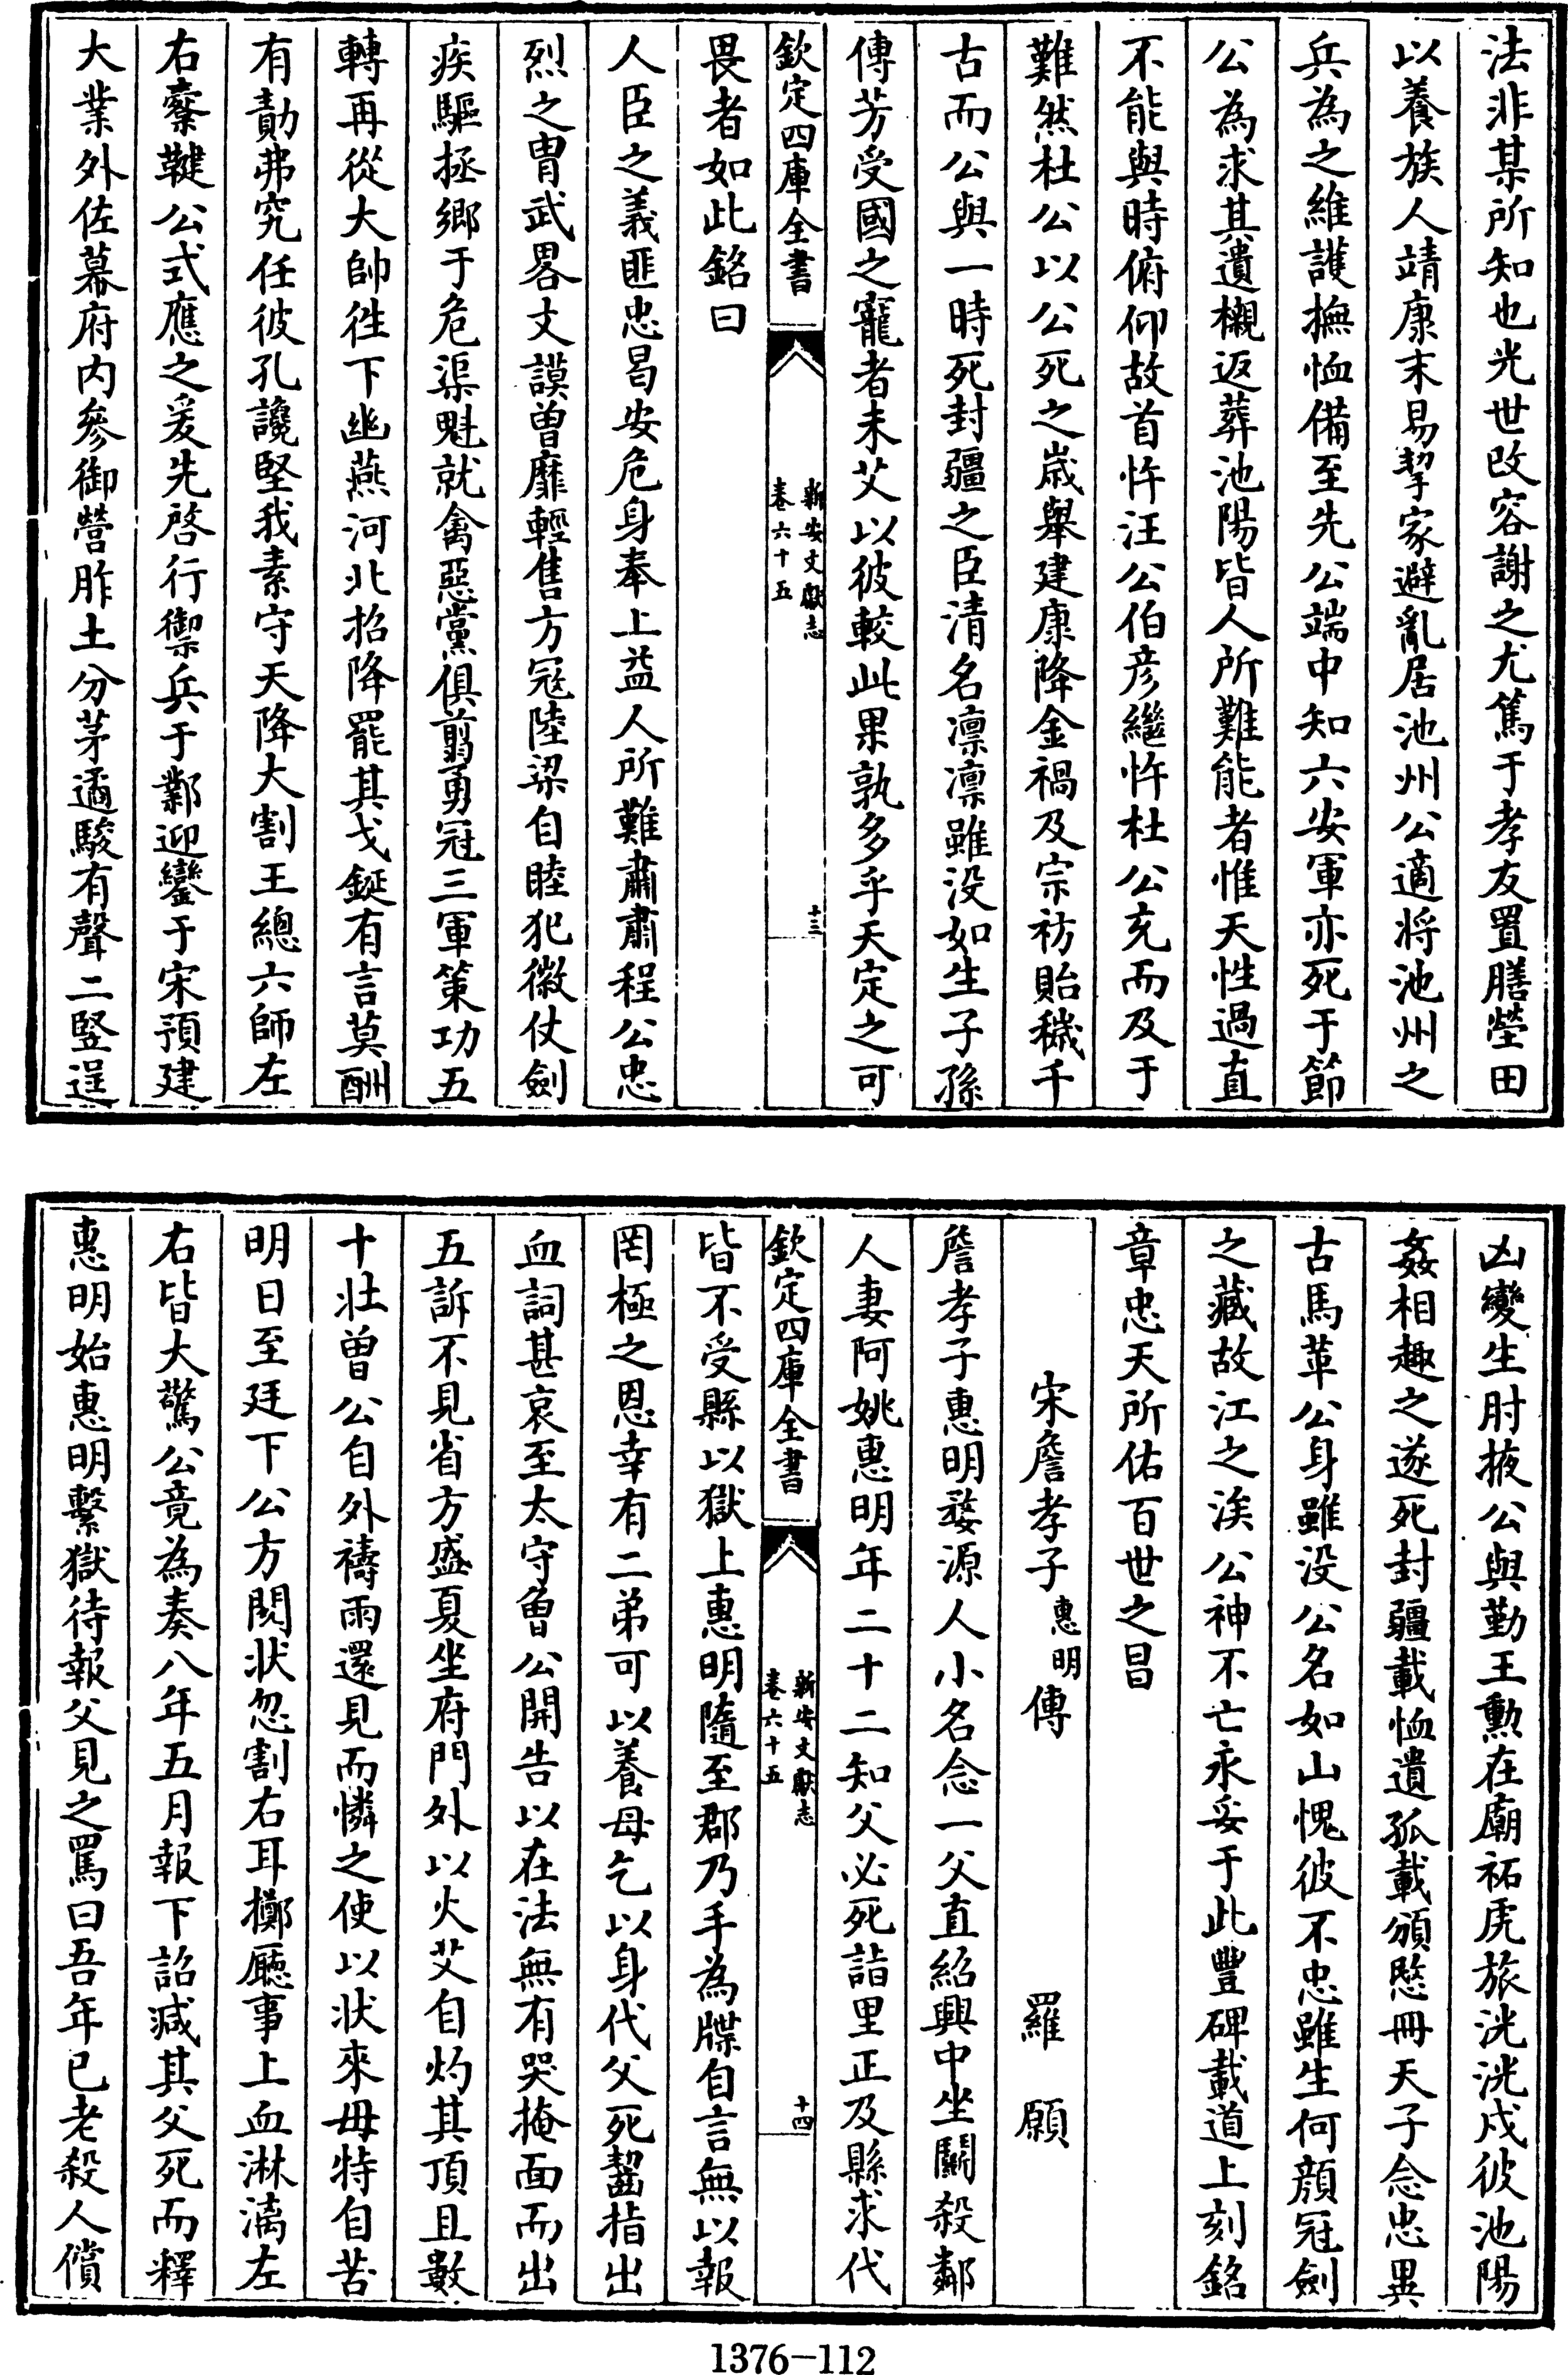 法非某所知也光世改容謝之尤篤于孝友置膳塋田
以養族人靖康末易挈家避亂居池州公適將池州之
兵為之維護撫恤備至先公端中知六安軍亦死于節
公為求其遺櫬返葬池陽皆人所難能者惟天性過直
不能與時俯仰故首忤汪公伯彥繼忤杜公充而及于
難然杜公以公死之嵗舉建康降金禍及宗祊貽穢千
古而公與一時死封疆之臣清名凛凛雖没如生子孫
傳芳受國之寵者未艾以彼較此果孰多乎天定之可
欽定四庫全書
新安文獻志
卷六十五
十三
畏者如此銘曰
人臣之義匪忠曷安危身奉上益人所難肅肅程公忠
烈之胄武畧丈謨曽靡輕售方冦陸梁自睦犯徽仗劍
疾驅拯鄉于危渠魁就禽惡黨俱翦勇冠三軍策功五
轉再從大帥徃下幽燕河北招降罷其戈鋋有言莫酬
有勣弗究任彼孔讒堅我素守天降大割王總六師左
右櫜鞬公式應之爰先啓行禦兵于鄴迎鑾于宋預建
大業外佐幕府内參御營胙土分茅遹駿有聲二竪逞
凶變生肘掖公與勤王勲在廟祏虎旅洸洸戍彼池陽
姦相趣之遂死封疆載恤遺孤載頒愍冊天子念忠異
古馬革公身雖没公名如山愧彼不忠雖生何顔冠劍
之藏故江之涘公神不亡永妥于此豐碑載道上刻銘
章忠天所佑百世之昌
宋詹孝子惠明傳　羅　願
詹孝子惠明婺源人小名念一父直紹興中坐鬭殺鄰
人妻阿姚惠明年二十二知父必死詣里正及縣求代
欽定四庫全書
新安文獻志
卷六十五
十四
皆不受縣以獄上惠明隨至郡乃手為牒自言無以報
罔極之恩幸有二弟可以養母乞以身代父死齧指出
血詞甚哀至太守曽公開告以在法無有哭掩面而出
五訴不見省方盛夏坐府門外以火艾自灼其頂且數
十壯曽公自外禱雨還見而憐之使以状來毋特自苦
明日至廷下公方閱状忽割右耳擲廳事上血淋漓左
右皆大驚公竟為奏八年五月報下詔減其父死而釋
惠明始惠明繫獄待報父見之罵曰吾年已老殺人償
1376-112